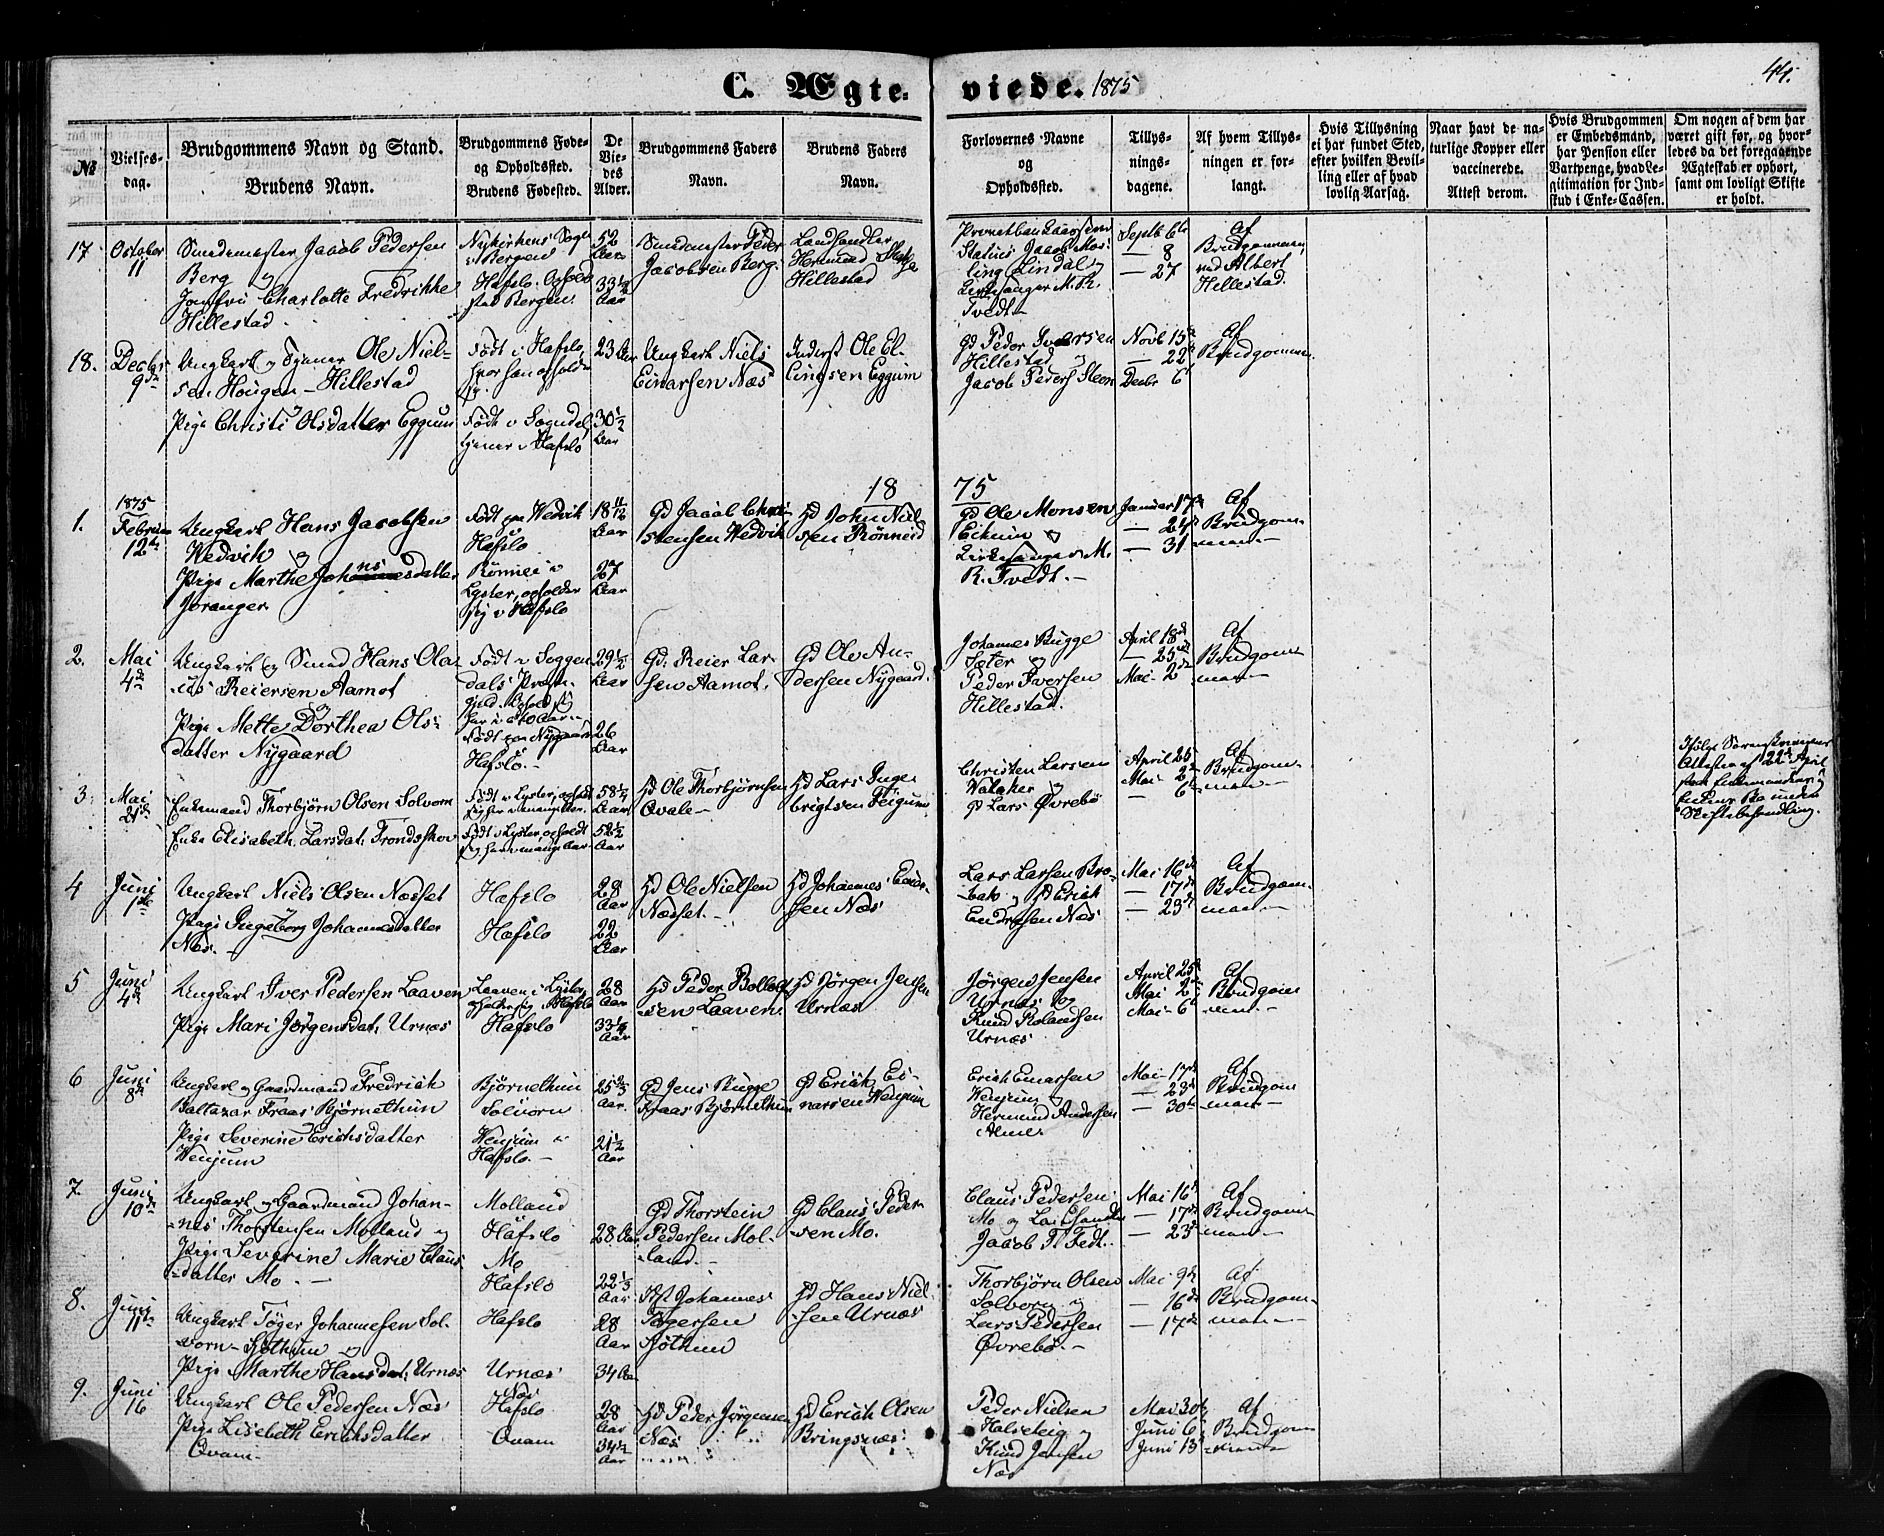 C. Ægteviede. 1875
44.
№
Vielsesdag.
Brudgommens Navn og Stand.
Brudens Navn.
Brudgommens Føde-
og Opholdssted.
Brudens Fødested.
De
Vie-
des
Alder.
Brudgommens Faders
Navn.
Brudens Faders
Navn.
Forlovernes Navne
og
Opholdssted.
Tillys-
nings-
dagene.
Af hvem Tillys-
ningen er for-
langt.
Hvis Tillysning
ei har fundet Sted,
efter hvilken Bevil-
ling eller af hvad
lovlig Aarsag.
Naar havt de na-
turlige Kopper eller
vaccinerede.
Attest derom.
Hvis Brudgommen
er Embedsmand,
har Pension eller
Vartpenge, hvad Le-
gitimation for Ind-
skud i Enke-Cassen.
Om nogen af dem har
været gift før, og hvor-
ledes da det foregaaende
Ægteskab er ophørt,
samt om lovligt Skifte
er holdt.
17. October 11
Smedemester Jacob Pedersen
Berg og
Jomfru Charlotte Fredrikke
Hillestad
Nykirkens Sogn
i Bergen
Hafslo.
52 Aar
33½ Aar
Smedmester Peder
Jacobsen Berg.
Landhandler
Hermund
Hillestad
Jacob
Lindal og
Kirkesanger M. R.
Tvedt
Septb 6te
— 8
— 27
Af
Brudgommen
ved Albert
Hillestad.
18. Decbr 9de
Ungkarl og Tjener Ole Niel-
sen Hougen-Hillestad
Pige Christi Olsdatter Eggum
Født i Hafslo,
hvor han opholder
sig.
Født i Sogndal,
tjener i Hafslo
23 Aar
30½ Aar
Ungkarl Niels
Einarsen Næs
Inderst Ole El-
lingsen Eggum
Gd Peder Iversen
Hillestad og
Jacob Peders Steen
Novb 15de
— 22de
Decbr 6te
Af
Brudgommen
1875
1. 1875 Februar 12te
Ungkarl Hans Jacobsen
Wedvik og
Pige Marthe Johnsdatter
Joranger
Født paa Wedvik
Hafslo
Rønnei i
Lyster, opholder
sig i Hafslo
18 11/12 Aar
27 Aar
Gd Jacob Chri-
stensen Wedvik
Hd John Niel-
sen Rønneid
Gd Ole Monsen
Eikum og
Kirkesanger M.
R. Tvedt.
Januar 17de
— 24de
— 31
Af
Brudgom-
men
2. Mai 4de
Ungkarl og Smed Hans Ola-
us Reiersen Aamot
og
Pige Mette Dorthea Ols-
datter Nygaard
Født i Soggen-
dals Præste-
gjeld. Opholdt sig
her i c 10 Aar
Født paa Nygaard
Hafslo.
29½ Aar
26 Aar
Gd. Reier Lar-
sen Aamot.
Gd Ole An-
dersen Nygaard.
Johannes Bugge
Sæter og
Peder Iversen
Hillestad.
April 18de
— 25de
Mai 2de
Af
Brudgom-
men
3. Mai 21de
Enkemand Thorbjørn Olsen Solvorn
og
Enke Elisabeth Larsdat. Trondsskov
Født i Lyster, opholdt
sig her i mange Aar.
Født i Lyster, opholdt
sig her i mange Aar
58¼ Aar
52½ Aar
Hd Ole Thorbjørnsen
Qvale
Hd Lars Inge-
brigtsen Feigum
Christen Larsen
Walaker og
Gd Lars Øvrebø
April 25
Mai 2de
— 6te
Af
Brudgom-
men
Ifølge Sorenskriverens
Attest af 22de April
har Enkemanden og
Enken Bo under
Skiftebehandling.
4 Juni 1ste
Ungkarl Niels Olsen Næsset
Pige Ingeborg Johannesdatter
Næs.
Hafslo
Hafslo
28 Aar
22 Aar
Hd Ole Nielsen
Næsset.
Hd Johannes Endre-
sen Næs
Lars Larsen Bro-
bak og Hd Erick
Endresen Næs
Mai 16de
— 17de
— 23de
Af
Brudgom-
men
5 Juni 4de
Ungkarl Iver Pedersen Laaven
Pige Mari Jørgensdat. Urnæs
Laaven i Lyster,
opholder sig i Hafslo
Hafslo
28 Aar
33¼ Aar
Hd Peder Bottolf-
sen Laaven
Hd Jørgen Jensen
Urnæs
Jørgen Jensen
Urnæs og
Knud Rolandsen
Urnæs
April 25de
Mai 2den
Mai 6te
Af
Brudgom-
men
6 Juni 8de
Ungkarl og Gaardmand Fredrich
Baltazar Fraas Bjørnethun
og
Pige Severine Erichsdatter
Wenjum
Bjørnethun
Solvorn
Wenjum i
Hafslo.
25⅔ Aar.
21½ Aar
Gd Jens Bugge
Fraas Bjørnethun
Gd Erick Ei-
narsen Wenjum
Erich Einarsen
Wenjum og
Hermund Andersen
Alme.
Mai 17de
— 23de
— 30te
Af
Brudgom-
men
7. Juni 10de
Ungkarl og Gaardmand Johan-
nes Thorstensen Molland og
Pige Severine Marie Claus-
datter Mo.
Molland
Hafslo
Mo
Hafslo
28 Aar
22⅓ Aar
Gd Thorstein
Pedersen Mol-
land.
Gd Claus Peder-
sen Mo.
Claus Pedersen
Mo og Landhandler
Jacob T. Fedt.
Mai 16de
— 17de
— 23de
Af
Brudgom-
men
8. Juni 11te
Ungkarl Tøger Johannesen Sol-
vorn-Kjøthun og
Pige Marthe Hansdat. Urnæs
Hafslo
Urnæs
28 Aar
34 Aar
Hst Johannes
Tøgersen
Kjøthun
Hd Hans Niel-
sen Urnæs
Thorbjørn Olsen
Solvorn og
Lars Pedersen
Øvrebø.
Mai 9de
— 16de
— 17de
Af
Brudgom-
men
9. Juni 16
Ungkarl Ole Pedersen Næs
Pige Lisebeth Erichsdatter
Qvam
Næs
Hafslo
Qvam
28 Aar
34½ Aar
Hd Peder Jørgensen
Næs
Hd Erich Olsen
Bringsnæs
Peder Nielsen
Halsteig og
Knud Jensen
Næs
Mai 30te
Juni 6te
Juni 13de
Af
Brudgom-
men